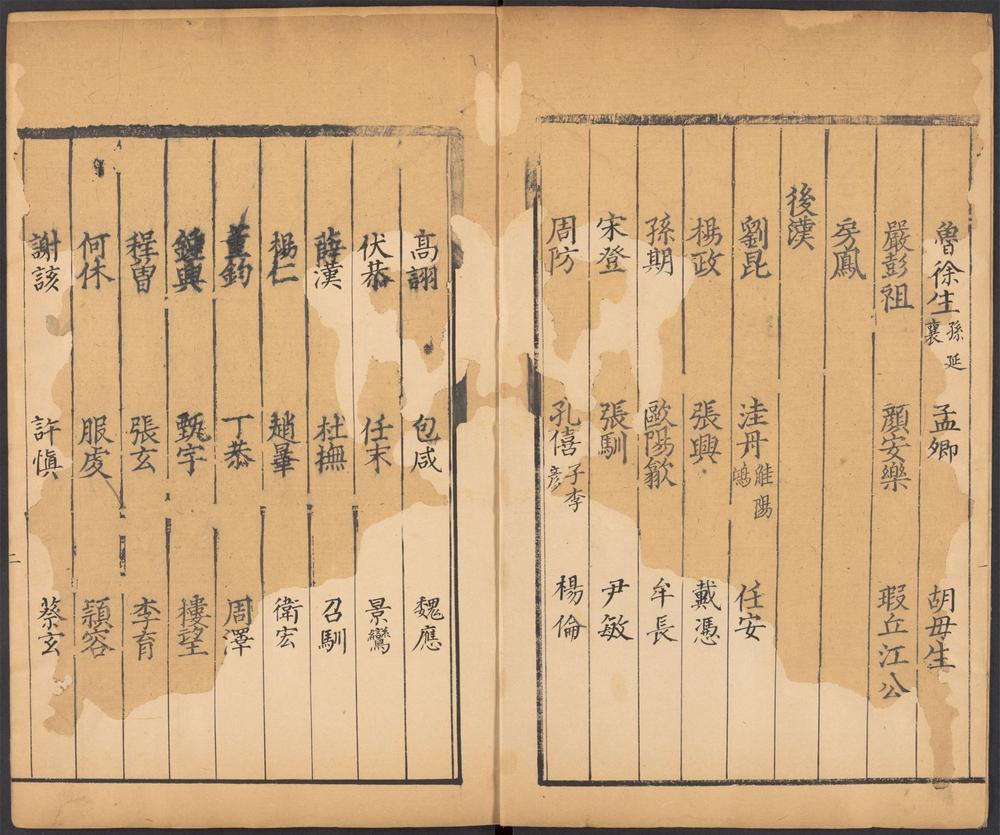 魯徐生孫延襄 孟卿 胡毋生
嚴彭祖 顔安樂 瑕丘江公
房鳳
後漢
劉昆 洼丹觟陽鴻 任安
楊政 張興 戴憑
孫期 歐陽歙 牟長
宋登 張馴 尹敏
周防 孔僖子季彦 楊倫
高詡 包咸 魏應
伏恭 任末 景鸞
薛漢 杜撫 召馴
楊仁 趙曅 衛宏
董鈞 丁恭 周澤
鍾興 甄宇 樓望
程曾 張玄 李育
何休 服虔 潁容
謝該 許慎 蔡玄
二